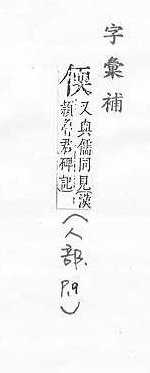 字彙補
又與儒同見漢
君碑記
(人部. P.9)